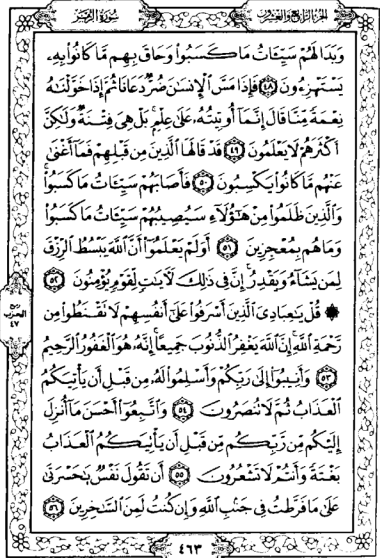 الجزء الرابع والعشرون سورة الزمر
وَبَدَا لَهُمْ سَيِّـَٔاتُ مَا كَسَبُوا۟ وَحَاقَ بِهِم مَّا كَانُوا۟ بِهِۦ
يَسْتَهْزِءُونَ ٤٨ فَإِذَا مَسَّ ٱلْإِنسَٰنَ ضُرٌّ دَعَانَا ثُمَّ إِذَا خَوَّلْنَٰهُ
نِعْمَةً مِّنَّا قَالَ إِنَّمَآ أُوتِيتُهُۥ عَلَىٰ عِلْمٍۭ بَلْ هِىَ فِتْنَةٌ وَلَٰكِنَّ
أَكْثَرَهُمْ لَا يَعْلَمُونَ ٤٩ قَدْ قَالَهَا ٱلَّذِينَ مِن قَبْلِهِمْ فَمَآ أَغْنَىٰ
عَنْهُم مَّا كَانُوا۟ يَكْسِبُونَ ٥٠ فَأَصَابَهُمْ سَيِّـَٔاتُ مَا كَسَبُوا۟
وَٱلَّذِينَ ظَلَمُوا۟ مِنْ هَٰٓؤُلَآءِ سَيُصِيبُهُمْ سَيِّـَٔاتُ مَا كَسَبُوا۟
وَمَا هُم بِمُعْجِزِينَ ٥١ أَوَلَمْ يَعْلَمُوٓا۟ أَنَّ ٱللَّهَ يَبْسُطُ ٱلرِّزْقَ
لِمَن يَشَآءُ وَيَقْدِرُ إِنَّ فِى ذَٰلِكَ لَءَايَٰتٍ لِّقَوْمٍ يُؤْمِنُونَ ٥٢
۞ قُلْ يَٰعِبَادِىَ ٱلَّذِينَ أَسْرَفُوا۟ عَلَىٰٓ أَنفُسِهِمْ لَا تَقْنَطُوا۟ مِن
رَّحْمَةِ ٱللَّهِ إِنَّ ٱللَّهَ يَغْفِرُ ٱلذُّنُوبَ جَمِيعًا إِنَّهُۥ هُوَ ٱلْغَفُورُ ٱلرَّحِيمُ
٥٣ وَأَنِيبُوٓا۟ إِلَىٰ رَبِّكُمْ وَأَسْلِمُوا۟ لَهُۥ مِن قَبْلِ أَن يَأْتِيَكُمُ
ٱلْعَذَابُ ثُمَّ لَا تُنصَرُونَ ٥٤ وَٱتَّبِعُوٓا۟ أَحْسَنَ مَآ أُنزِلَ
إِلَيْكُم مِّن رَّبِّكُم مِّن قَبْلِ أَن يَأْتِيَكُمُ ٱلْعَذَابُ
بَغْتَةً وَأَنتُمْ لَا تَشْعُرُونَ ٥٥ أَن تَقُولَ نَفْسٌ يَٰحَسْرَتَىٰ
عَلَىٰ مَا فَرَّطتُ فِى جَنۢبِ ٱللَّهِ وَإِن كُنتُ لَمِنَ ٱلسَّٰخِرِينَ ٥٦
ربع
الحزب
٤٧
٤٦٣